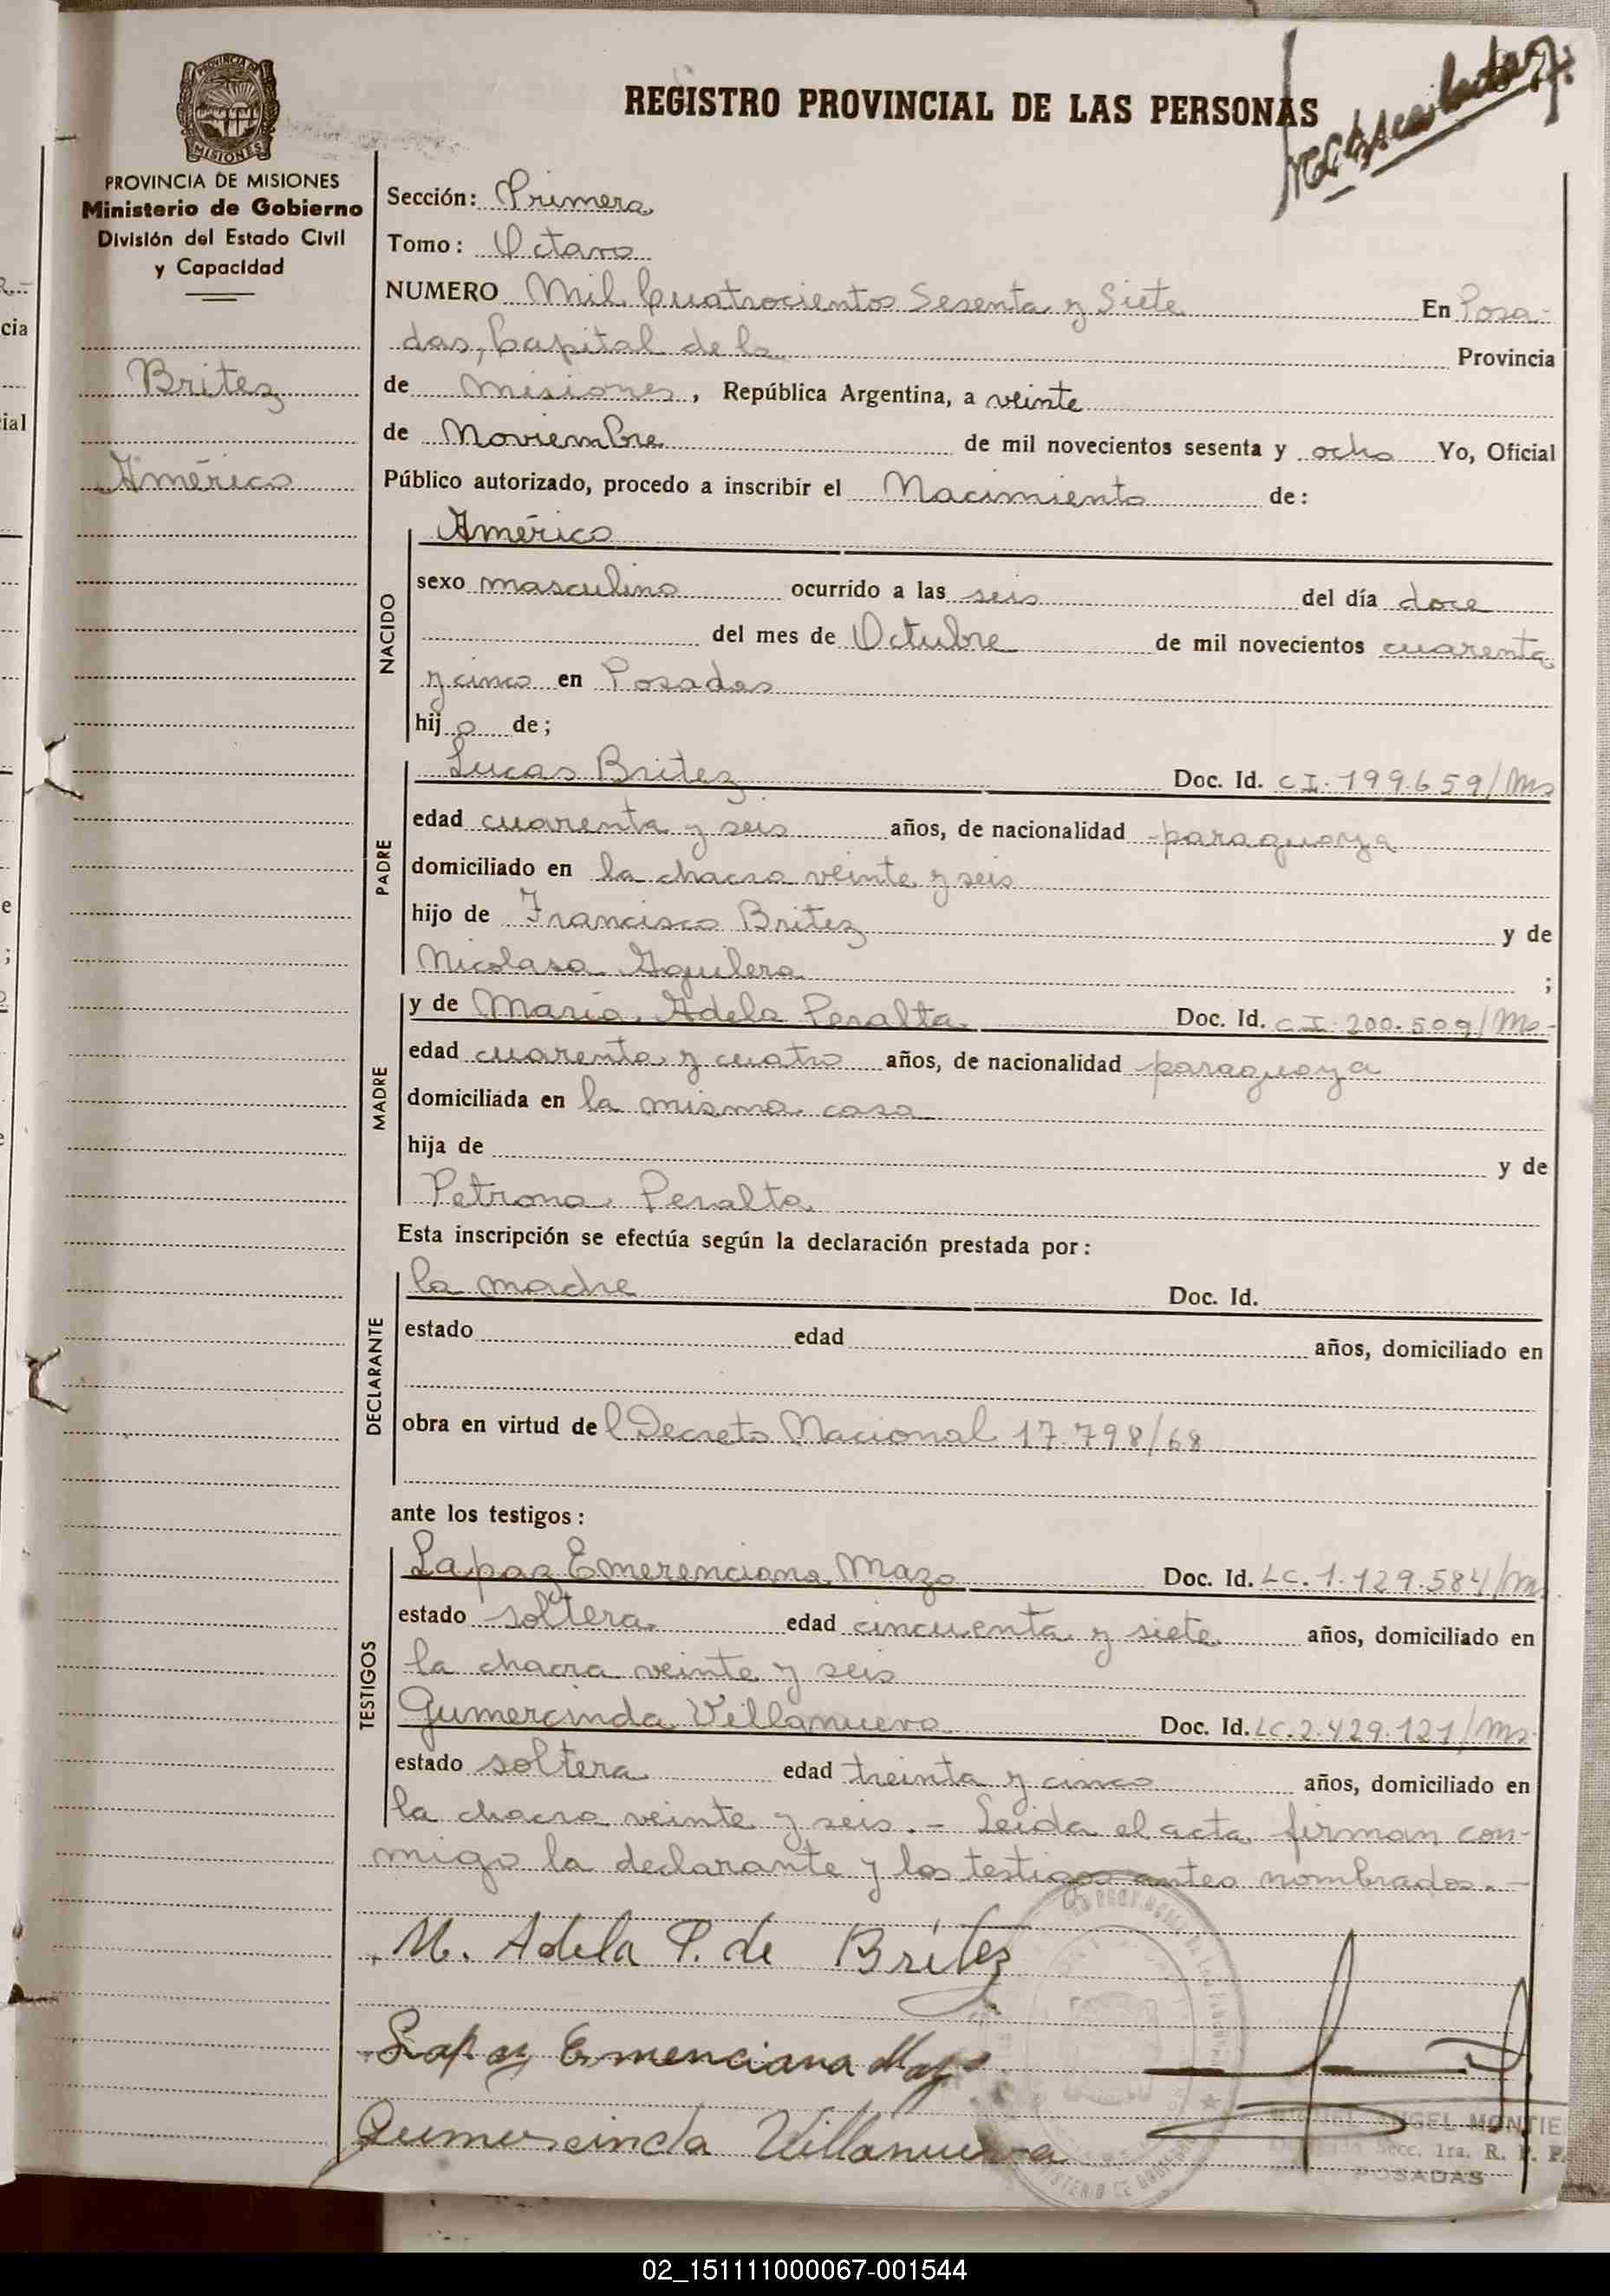 REGISTRO PROVINCIAL DE LAS PERSONAS
PROVINCIA DE MISIONES
Ministerio de Gobierno
División del Estado Civil
y Capacidad
Britez
Américo
Sección: Primera
Tomo: Octavo
NUMERO Mil Cuatrocientos Sesenta y Siete En Posa-
das, Capital de la Provincia
de Misiones, República Argentina, a veinte
de Noviembre de mil novecientos sesenta y ocho Yo, Oficial
Público autorizado, procedo a inscribir el Nacimiento de:
NACIDO
Américo
sexo masculino ocurrido a las seis del día doce
del mes de Octubre de mil novecientos cuarenta
y cinco en Posadas
hijo de;
PADRE
Lucas Britez Doc. Id. C.I. 199.659/Ms
edad cuarenta y seis años, de nacionalidad paraguaya
domiciliado en la chacra veinte y seis
hijo de Francisco Britez y de
Nicolasa Aguilera ;
MADRE
y de María Adela Peralta Doc. Id. C.I. 200.509/Ms-
edad cuarenta y cuatro años, de nacionalidad paraguaya
domiciliada en la misma casa
hija de y de
Petrona Peralta
Esta inscripción se efectúa según la declaración prestada por:
DECLARANTE
la madre Doc. Id.
estado edad años, domiciliado en
obra en virtud del Decreto Nacional 17.798/68
ante los testigos:
TESTIGOS
Lapaz Emerenciana Mazo Doc. Id. LC. 1.129.584/Ms
estado soltera edad cincuenta y siete años, domiciliado en
la chacra veinte y seis
Gumercinda Villanueva Doc. Id. LC. 2.429.121/Ms-
estado soltera edad treinta y cinco años, domiciliado en
la chacra veinte y seis.- Leida el acta firman con-
migo la declarante y los testigos antes nombrados.-
M. Adela P. de Brítez
Lapaz Emenciana Mazo
Gumercinda Villanueva
MIGUEL ANGEL MONTIE
Secc. 1ra. R. P. P.
POSADAS
02_151111000067-001544